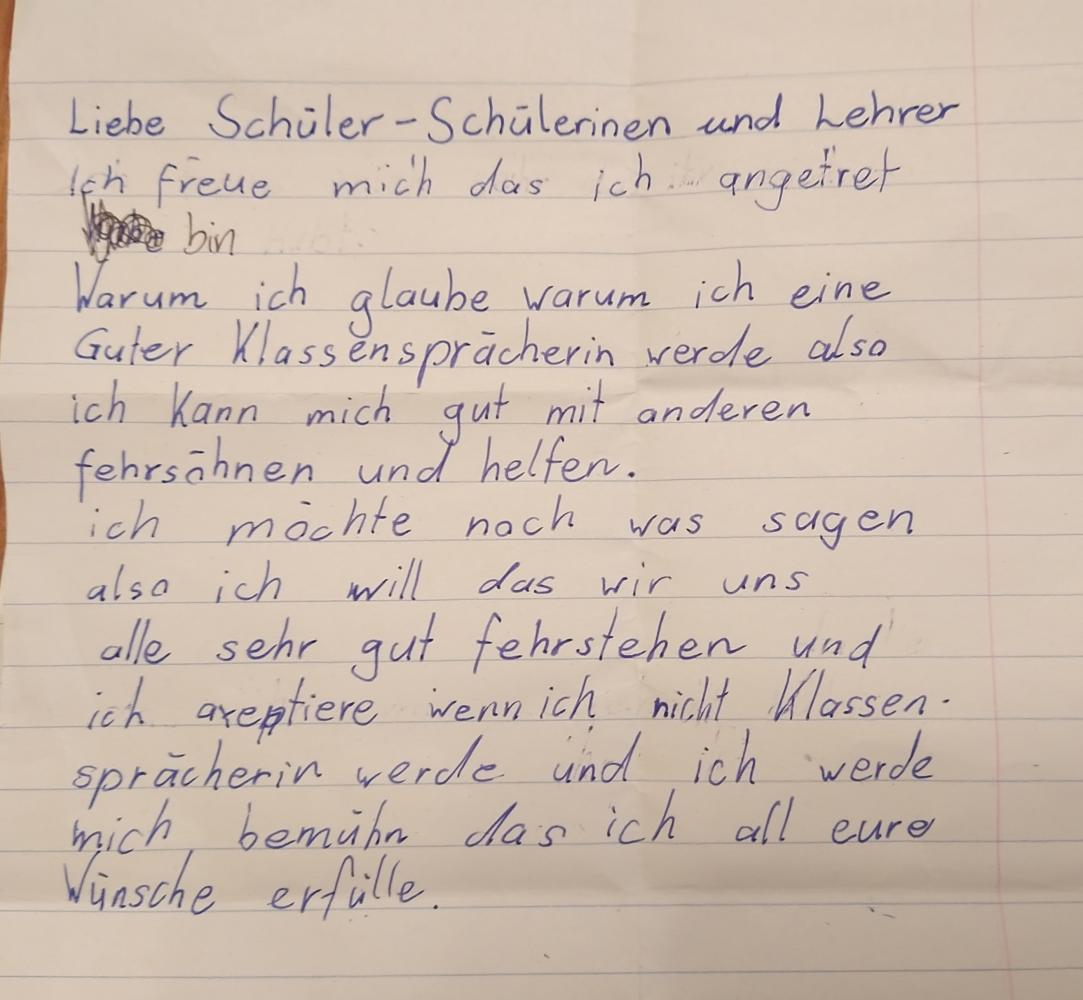 Liebe Schüler-Schülerinen und Lehrer
Ich freue mich das ich angetret
bin
Warum ich glaube warum ich eine
Guter Klassensprächerin werde also
ich kann mich gut mit anderen
fehrsöhnen und helfen.
ich möchte noch was sagen
also ich will das wir uns
alle sehr gut fehrstehen und
ich axeptiere wenn ich nicht Klassen-
sprächerin werde und ich werde
mich bemühn das ich all eure
Wünsche erfülle.